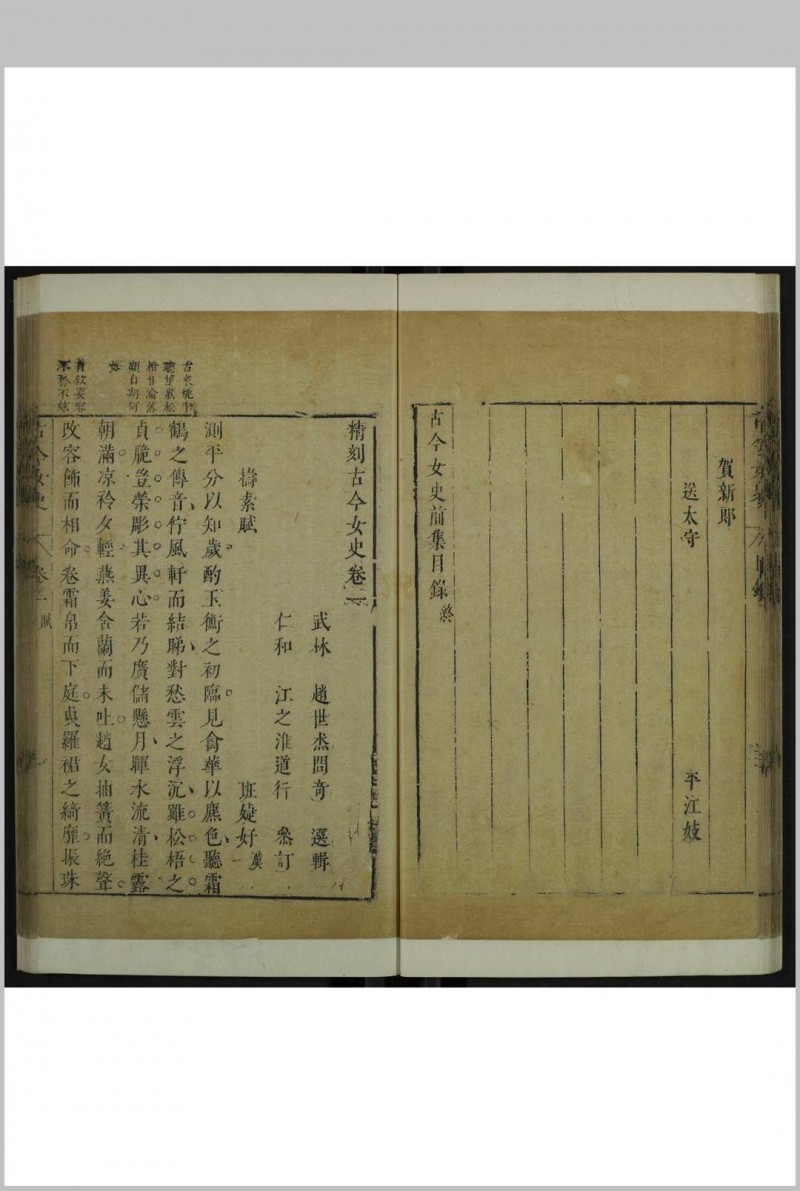 賀新郎
送太守
平江妓
古今女史前集目錄終
精刻古今女史卷一
武林 趙世杰問奇 選輯
仁和 江之淮道行 叅訂
擣素賦
班婕妤 漢
測平分以知歲酌玉衡之初臨見禽華以麃色聽霜
鶴之傳音佇風軒而結睇對愁雲之浮沉雖松梧之
貞脆豈榮彫其異心若乃廣儲懸月暉水流清桂露
朝滿凉衿夕輕燕姜含蘭而未吐趙女抽簧而絕聲
改容飾而相命卷霜帛而下庭曳羅裙之綺靡振珠